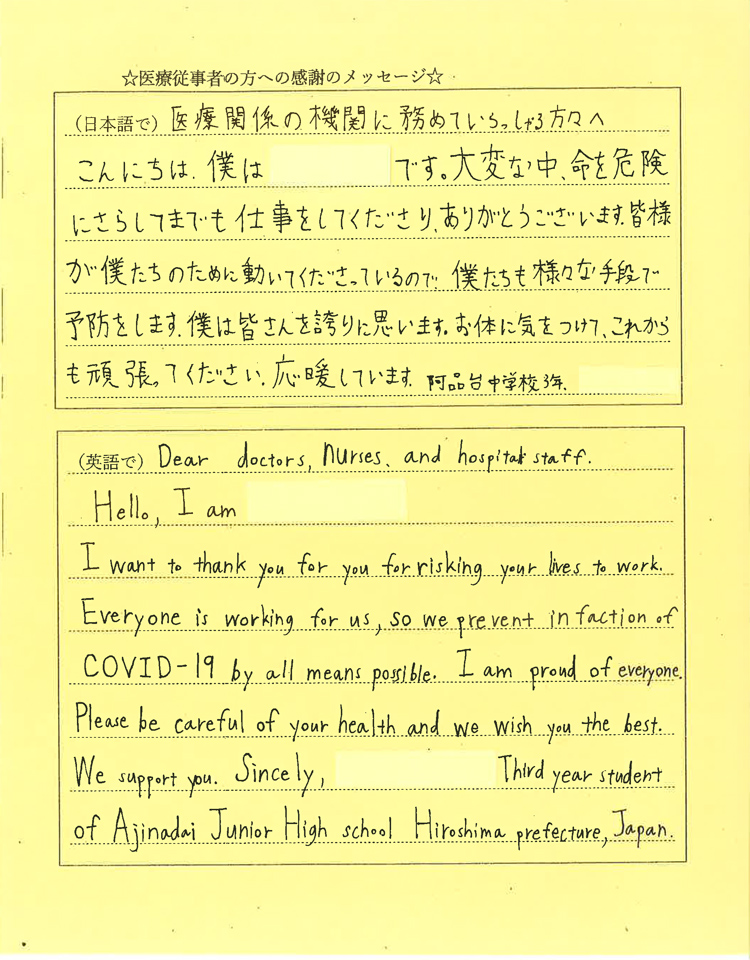 ☆医療従事者の方への感謝のメッセージ☆
（日本語で）医療関係の機関に務めていらっしゃる方々へ
こんにちは．僕は です。大変な中、命を危険
にさらしてまでも仕事をしてくださり、ありがとうございます．皆様
が僕たちのために動いてくださっているので 僕たちも様々な手段で
予防をします．僕は皆さんを誇りに思います。お体に気をつけて、これから
も頑張ってください．応暖しています． 阿品台中学校3年．
（英語で）Dear doctors, nurses, and hospital staff.
Hello, I am
I want to thank you for you for risking your lives to work.
Everyone is working for us, so we prevent infaction of
COVID-19 by all means possible. I am proud of everyone.
Please be careful of your health and we wish you the best.
We support you. Sincely, Third year student
of Ajinadai Junior High school Hiroshima prefecture, Japan.